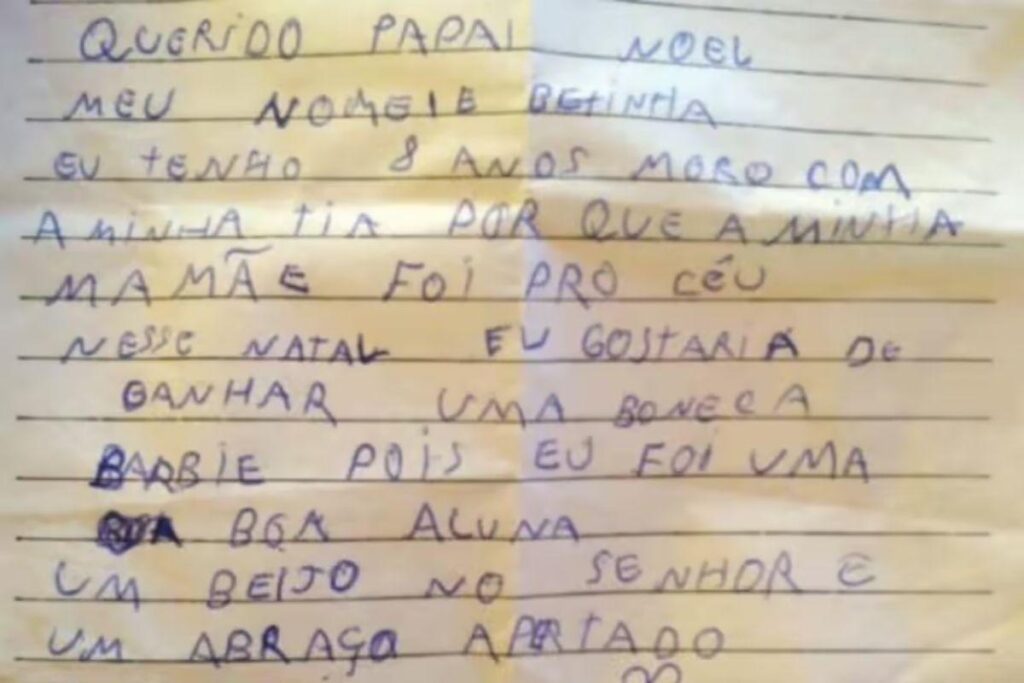 QUERIDO PAPAI NOEL
MEU NOME IE BETINHA
EU TENHO 8 ANOS MORO COM
A MINHA TIA POR QUE A MINHA
MAMÃE FOI PRO CÉU
NESSE NATAL EU GOSTARIA DE
GANHAR UMA BONECA
BARBIE POIS EU FOI UMA
BOA ALUNA
UM BEIJO NO SENHOR E
UM ABRAÇO APERTADO